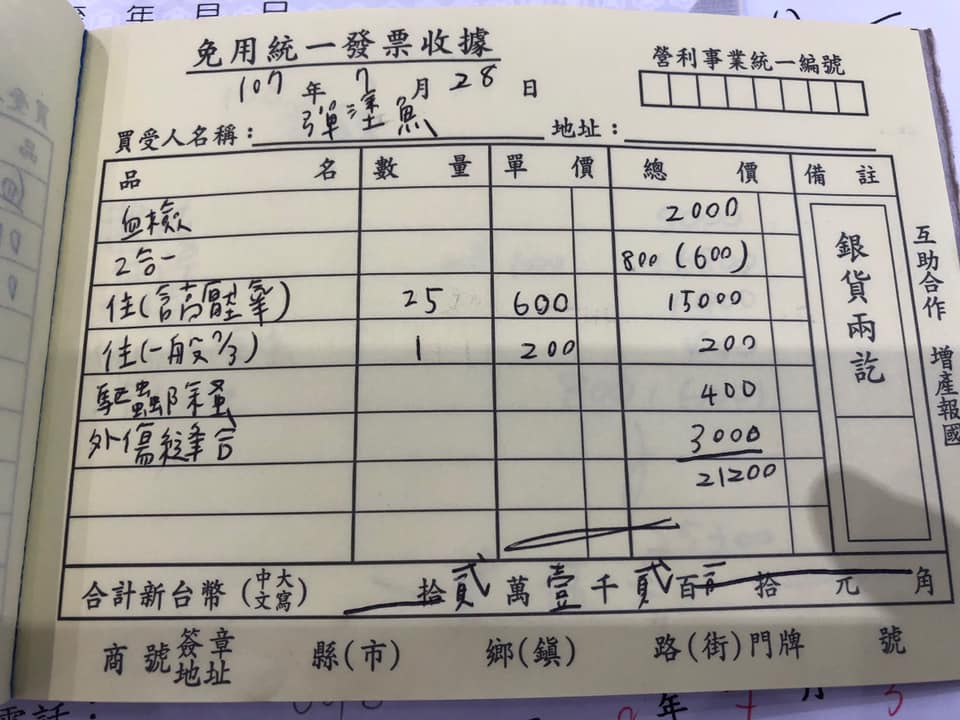 年 月 日
免用統一發票收據
107年7月28日
營利事業統一編號
買受人名稱：彈塗魚 地址：
品名 數量 單價 總價 備註
血檢 2000
2合一 800(600)
住(含高壓氧) 25 600 15000
住(一般7/3) 1 200 200
驅蟲除蚤 400
外傷縫合 3000
21200
銀貨兩訖
互助合作 增產報國
合計新台幣(中文大寫) 拾貳萬壹千貳百 拾 元 角
商號簽章地址 縣(市) 鄉(鎮) 路(街)門牌 號